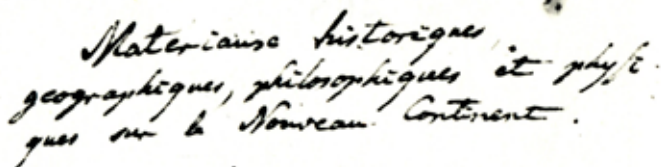 Materiaux historiques,
geographiques, philosophiques et physi
ques sur le Nouveau Continent.